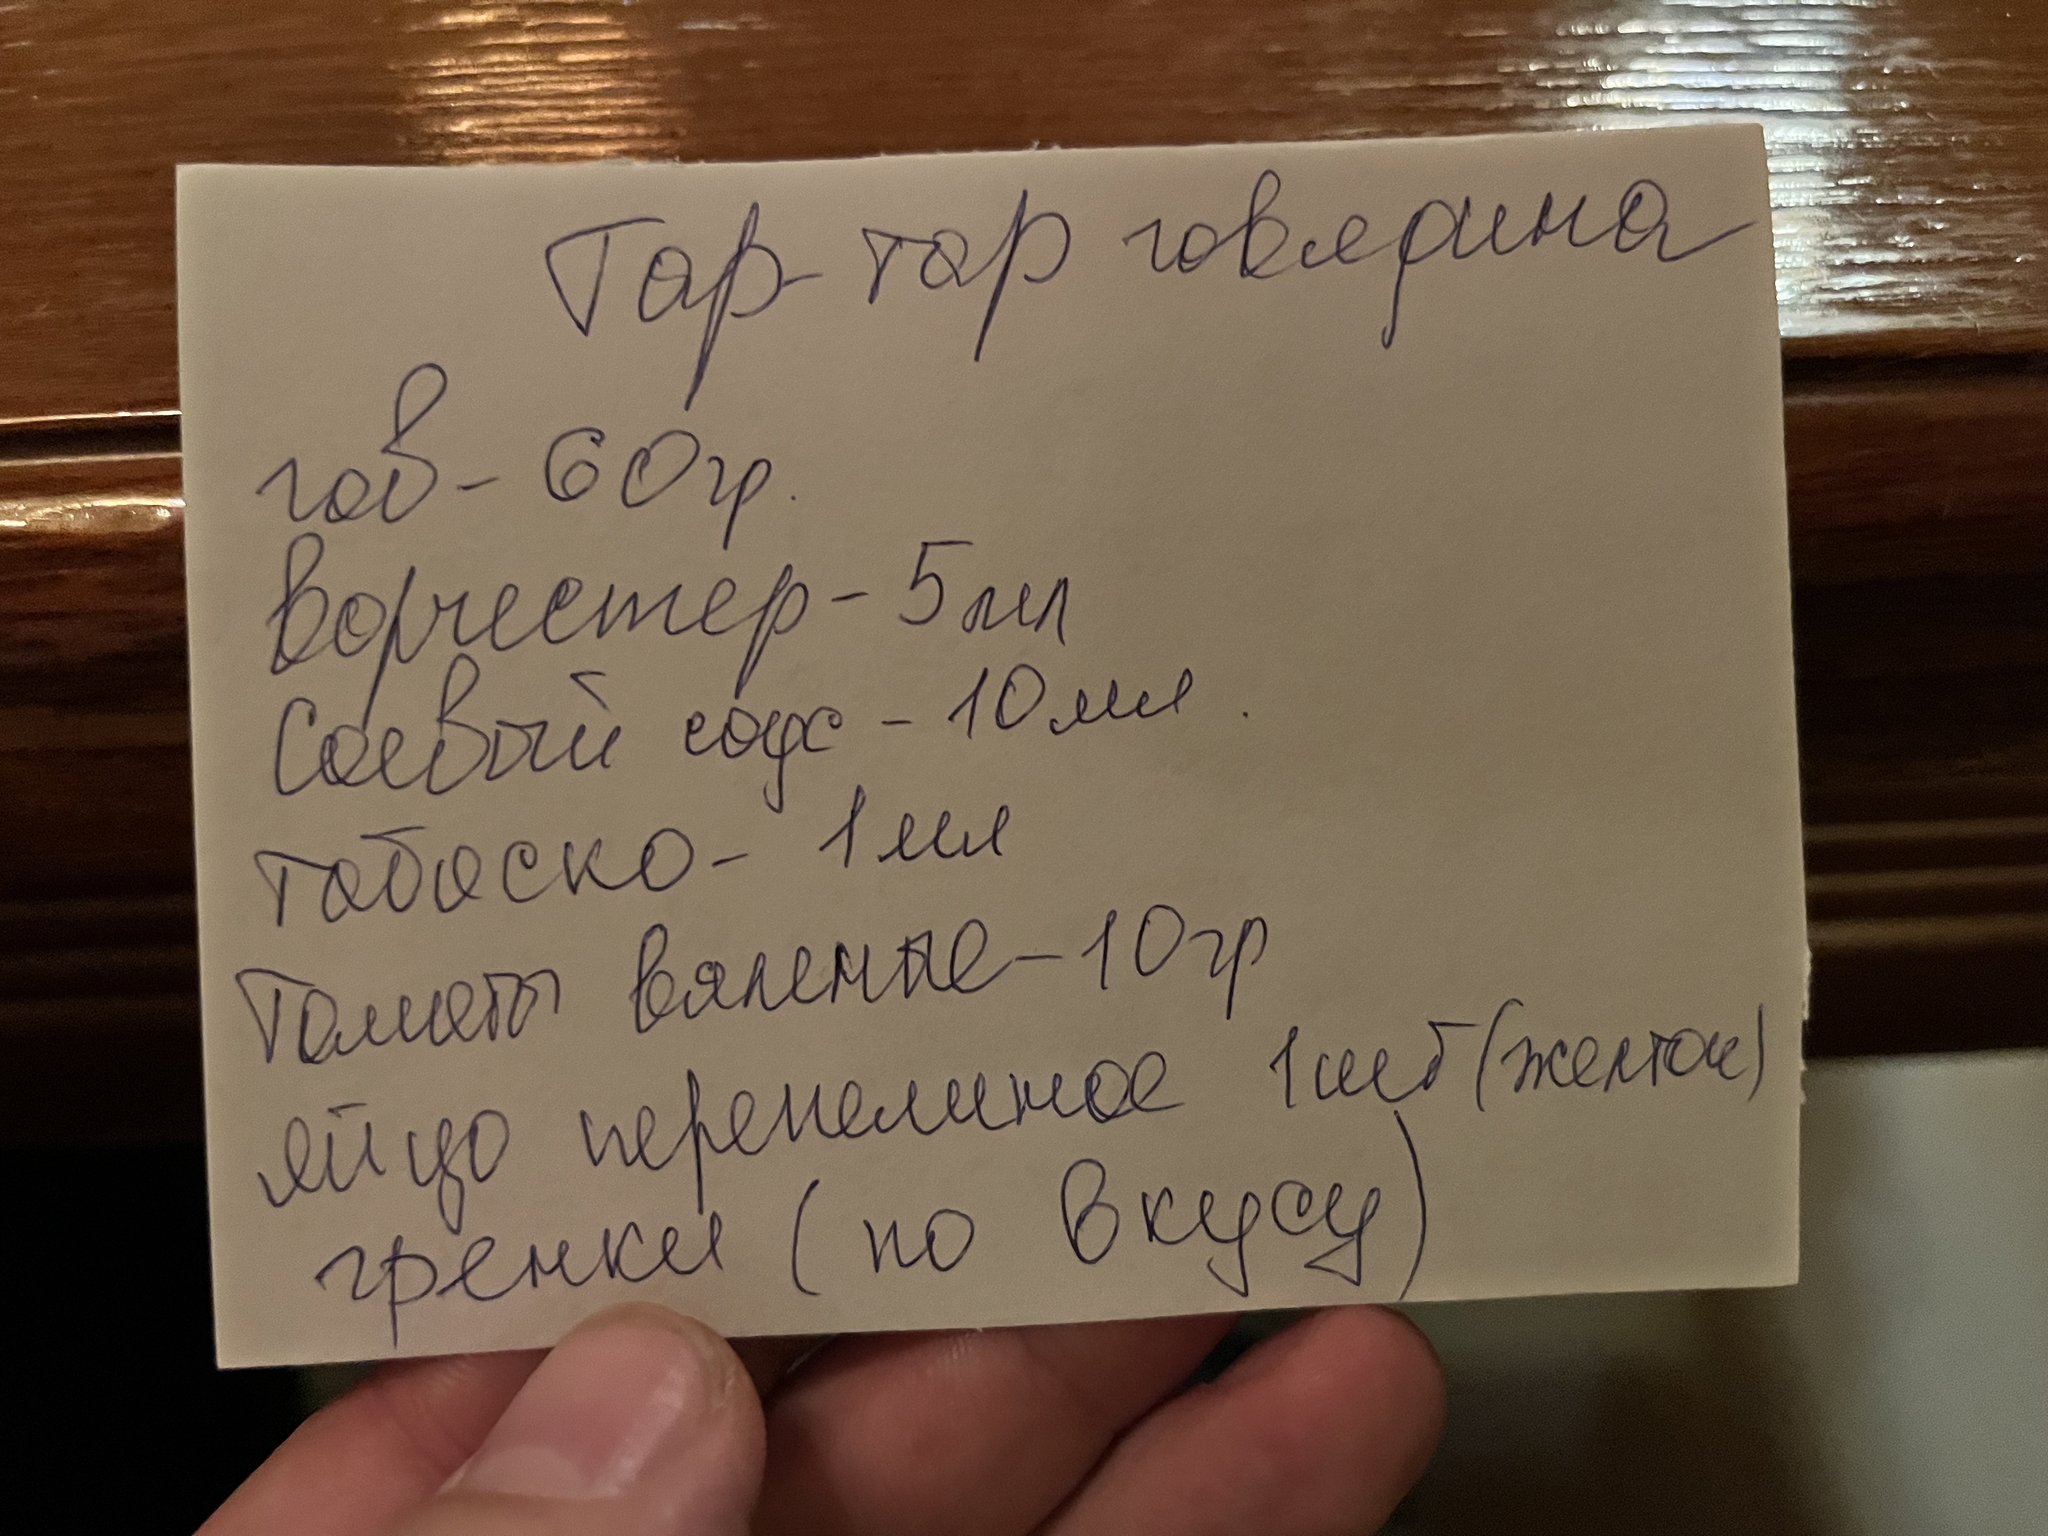 Тар-тар говядина
гов- 60гр.
Ворчестер-5мл
Соевый соус-10мл.
Табаско- 1мл
Томаты вяленые-10гр
яйцо перепелиное 1шт(желток)
гренки (по вкусу)